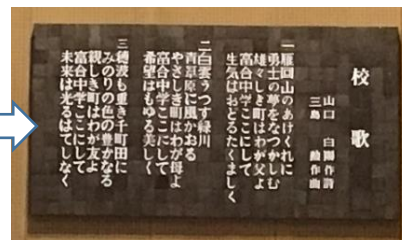 校歌
山口白陽作詩
三島勲作曲
一雁回山のあけくれに
勇士の夢をなつかしむ
雄々しき町はわが父よ
富合中学ここにして
生気はおどるたくましく
二白雲うつす緑川
青草原に風かおる
やさしき町はわが母よ
富合中学ここにして
希望はもゆる美しく
三穂波も重き千町田に
みのりの色の豊かなる
親しき町はわが友よ
富合中学ここにして
未来は光るはてしなく